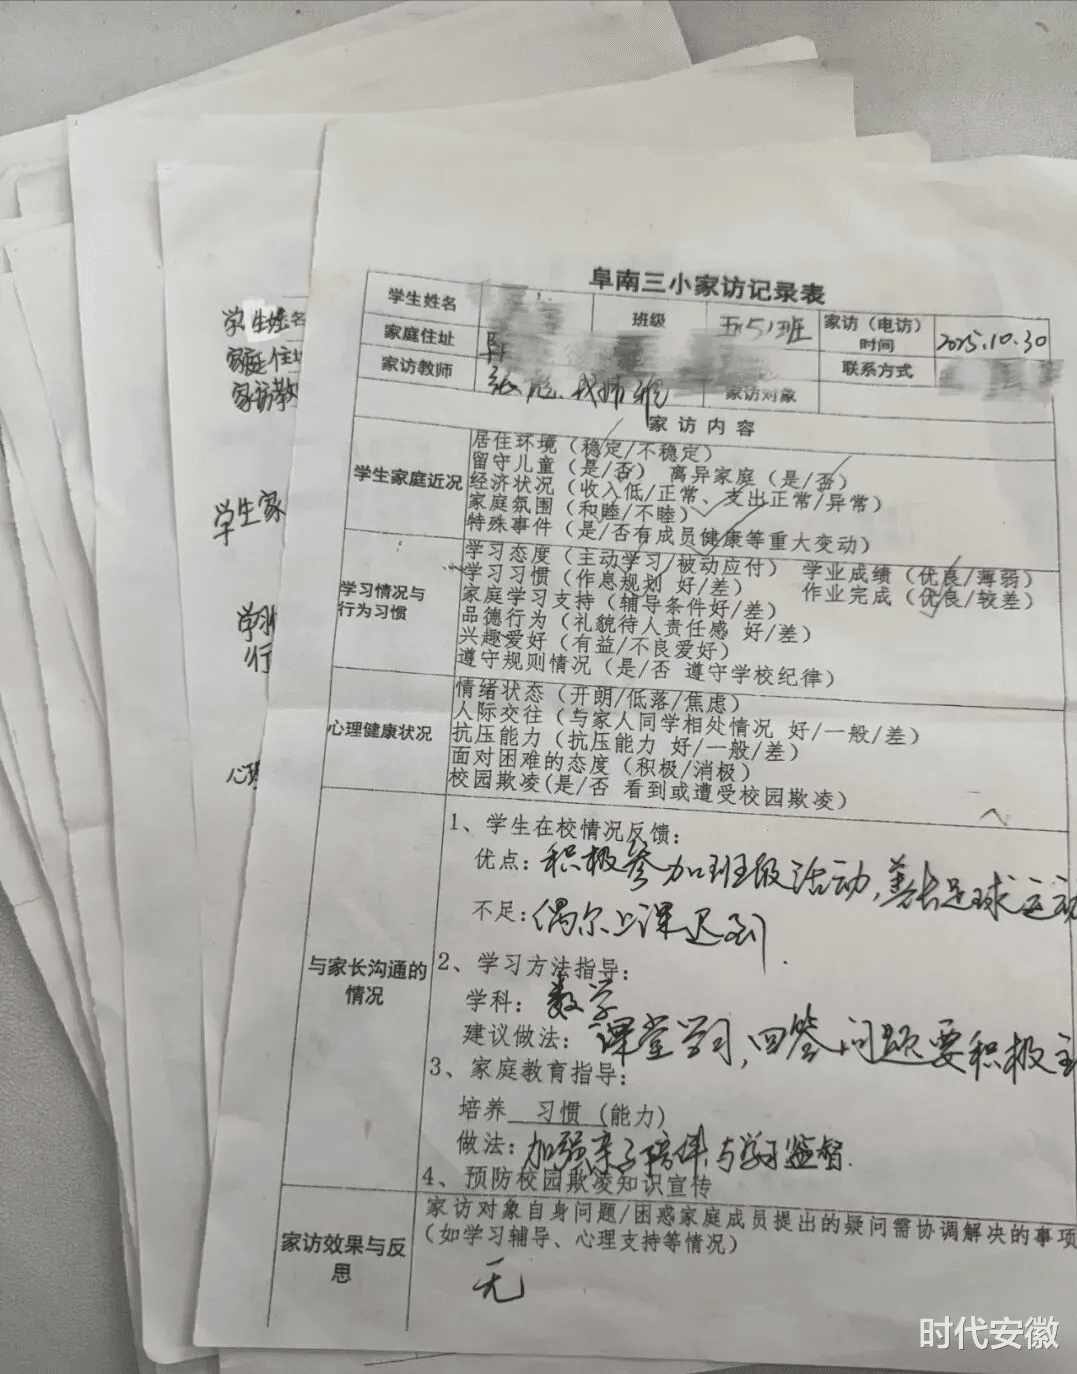 阜南三小家访记录表
学生姓名 班级 五(5)班 家访（电访）时间 2025.10.30
家庭住址 联系方式
家访教师 家访对象
家访内容
学生家庭近况
居住环境（稳定/不稳定）
留守儿童（是/否） 离异家庭（是/否）
经济状况（收入低/正常、支出正常/异常）
家庭氛围（和睦/不睦）
特殊事件（是/否有成员健康等重大变动）
学习情况与行为习惯
学习态度（主动学习/被动应付） 学业成绩（优良/薄弱）
学习习惯（作息规划 好/差） 作业完成（优良/较差）
家庭学习支持（辅导条件好/差）
品德行为（礼貌待人责任感 好/差）
兴趣爱好（有益/不良爱好）
遵守规则情况（是/否 遵守学校纪律）
心理健康状况
情绪状态（开朗/低落/焦虑）
人际交往（与家人同学相处情况 好/一般/差）
抗压能力（抗压能力 好/一般/差）
面对困难的态度（积极/消极）
校园欺凌(是/否 看到或遭受校园欺凌）
与家长沟通的情况
1、学生在校情况反馈：
优点：积极参加班级活动，善长足球运动
不足：偶尔上课迟到.
2、学习方法指导：
学科：数学
建议做法：课堂学习，回答问题要积极主
3、家庭教育指导：
培养 习惯 (能力)
做法：加强亲子陪伴与学习监督.
4、预防校园欺凌知识宣传
家访效果与反思
家访对象自身问题/困惑家庭成员提出的疑问需协调解决的事项
（如学习辅导、心理支持等情况）
无
学生姓名
家庭住址
家访教
学生家
学习
行
心理
时代安徽